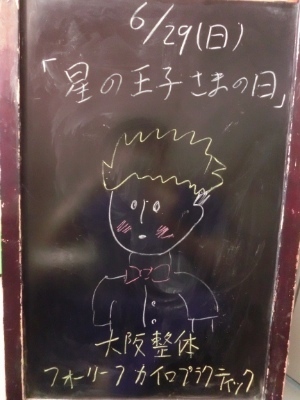 6/29(日)
「星の王子さまの日」
大阪整体
フォーリーフ カイロプラクティック